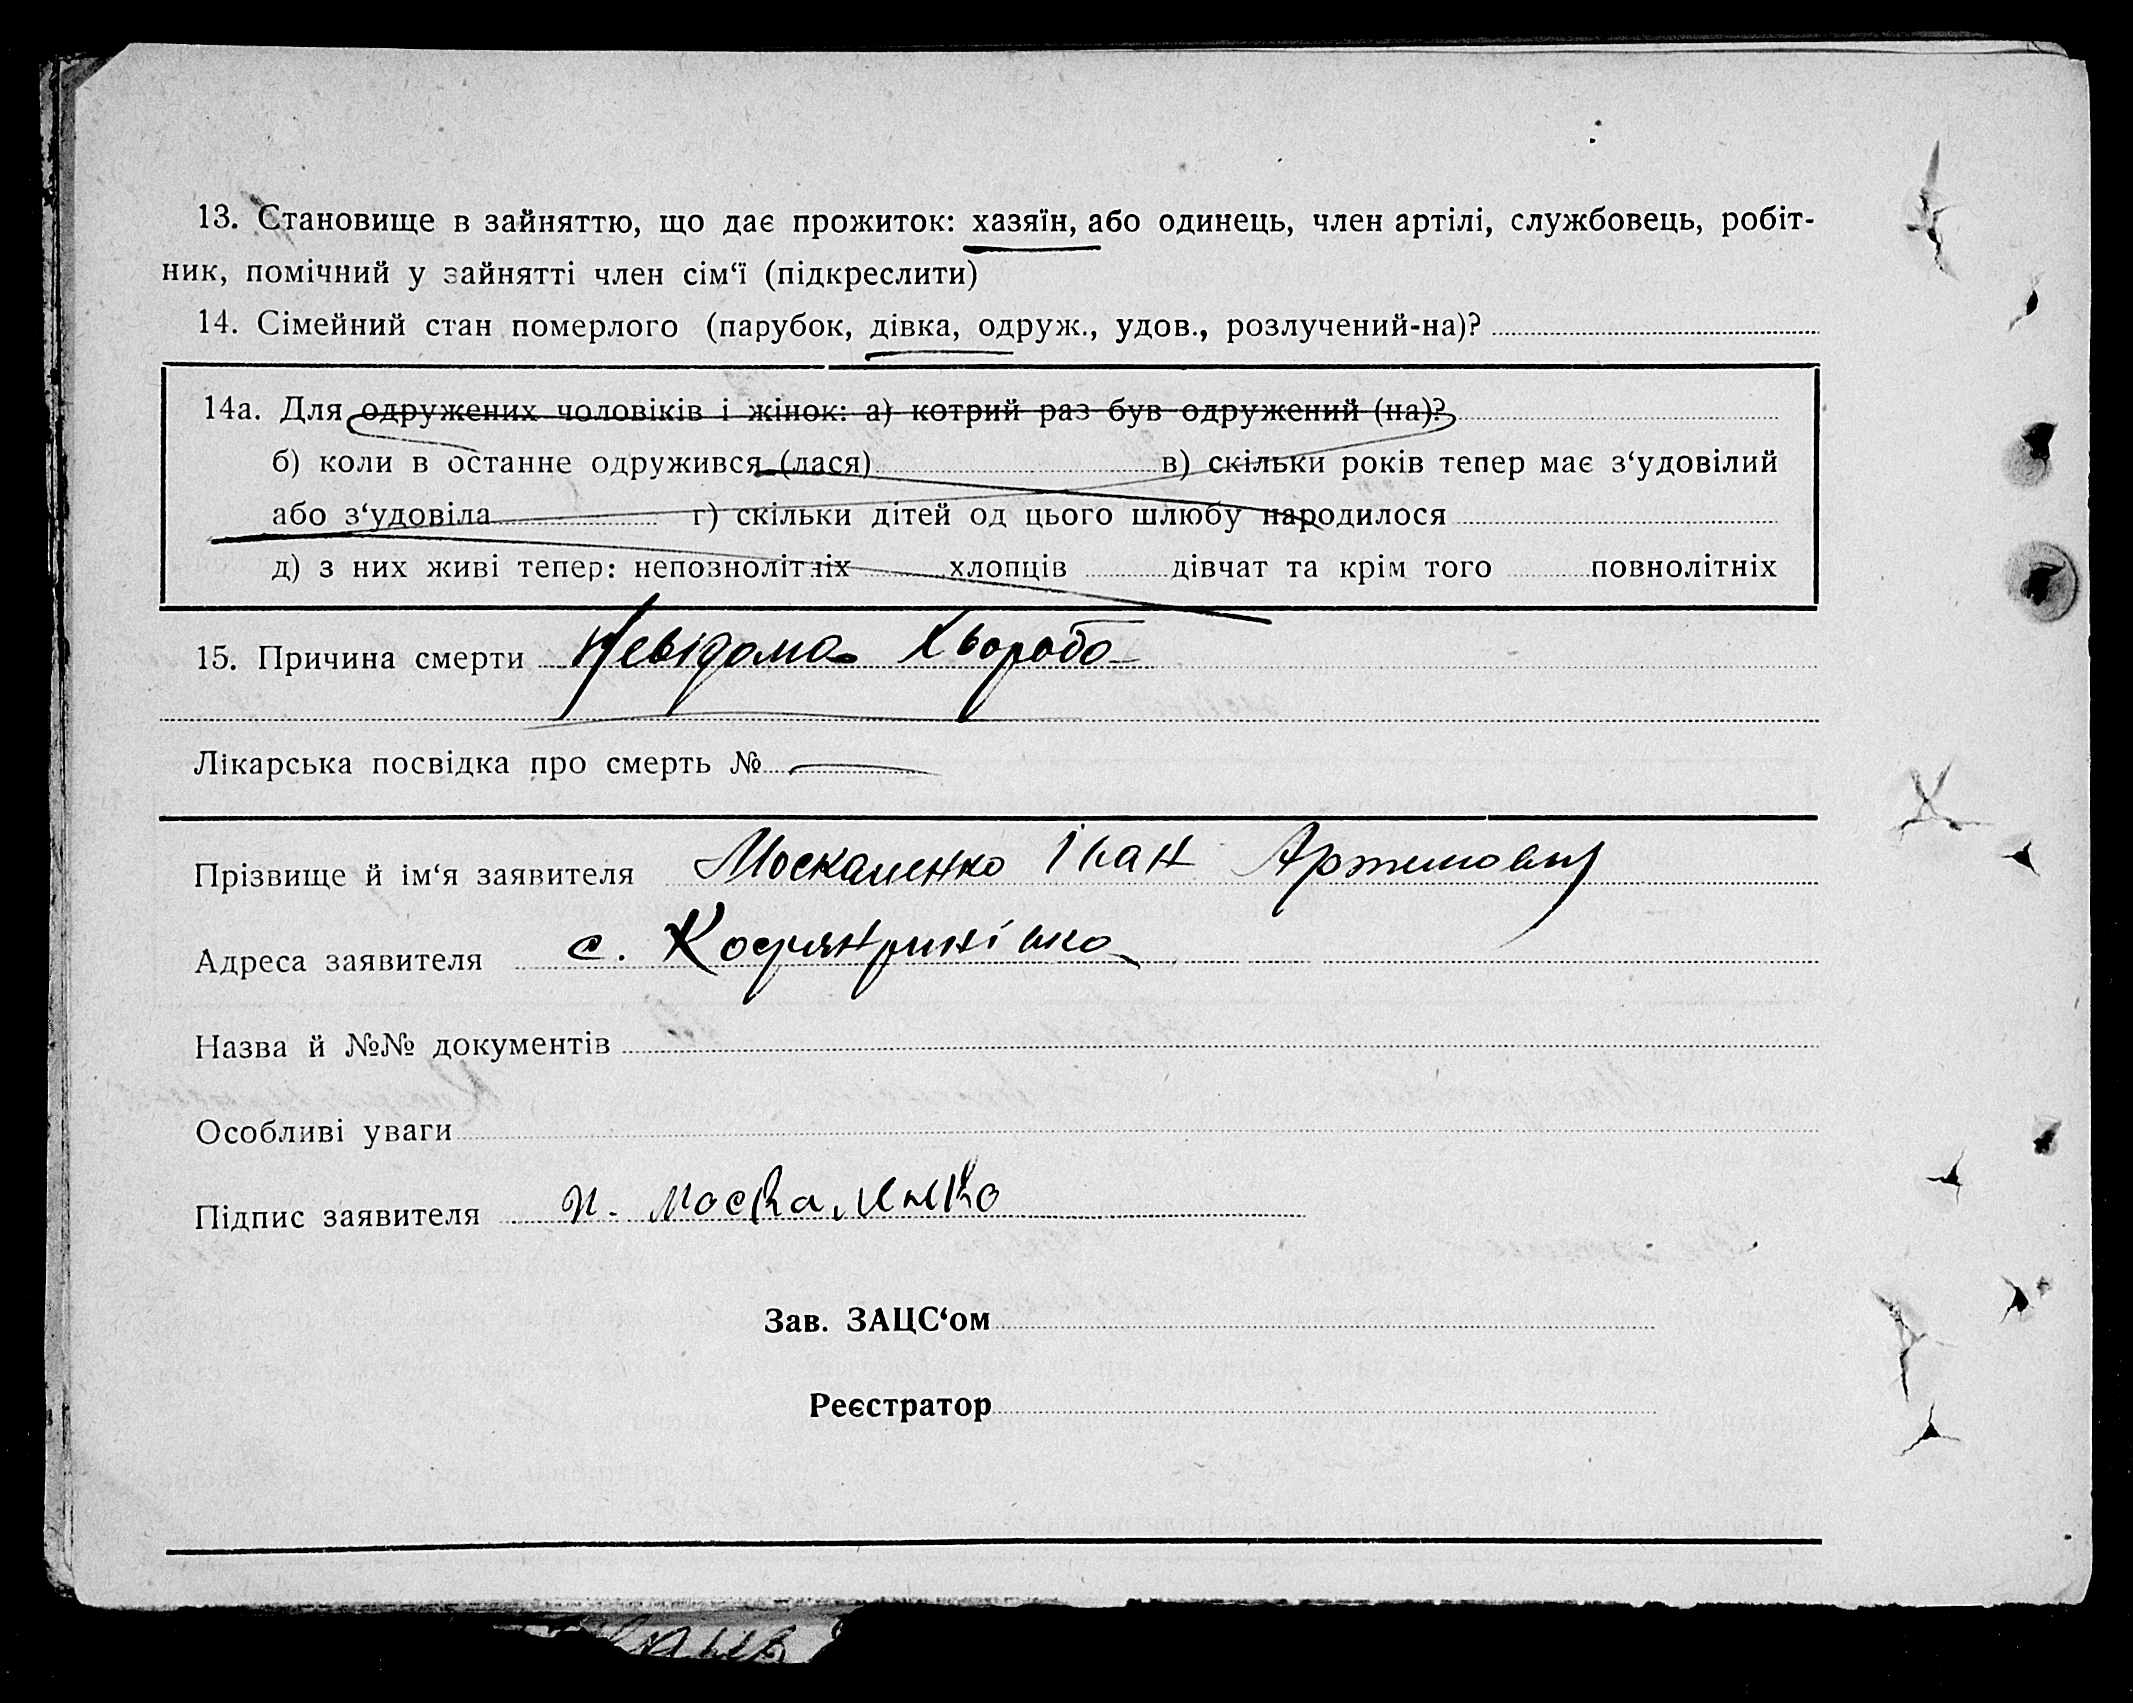 13. Становище в зайняттю, що дає прожиток: хазяїн, або одинець, член артілі, службовець, робіт-
ник, помічний у зайнятті член сім‘ї (підкреслити)
14. Сімейний стан померлого (парубок, дівка, одруж., удов., розлучений-на)?
14а. Для одружених чоловіків і жінок: а) котрий раз був одружений (на)?
б) коли в останне одружився (лася) в) скільки років тепер має з‘удовілий
або з‘удовіла г) скільки дітей од цього шлюбу народилося
д) з них живі тепер: непознолітніх хлопців дівчат та крім того повнолітніх
15. Причина смерти Невідома Хвороба
Лікарська посвідка про смерть №
Прізвище й ім‘я заявителя Москаленко Іван
Адреса заявителя с.
Назва й №№ документів
Особливі уваги
Підпис заявителя И. Москаленко
Зав. ЗАЦС‘ом
Реєстратор